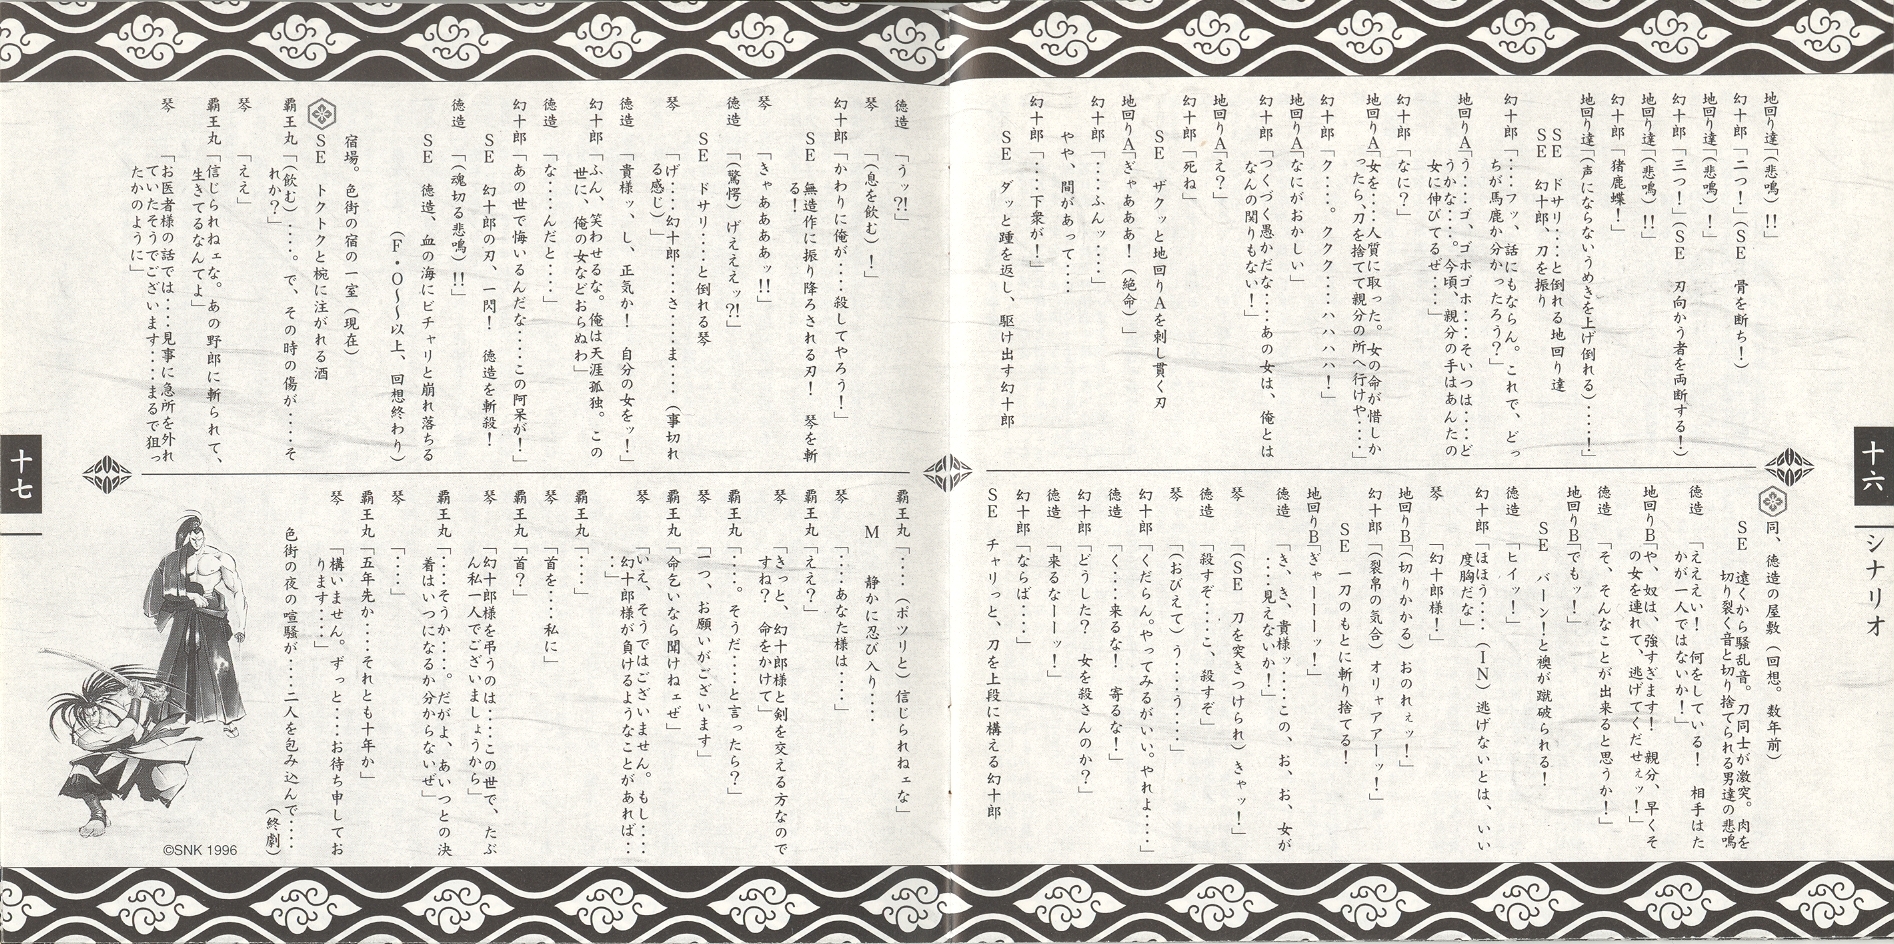 十六
シナリオ
地回り達「(悲鳴)!!」
幻十郎「二つ!」(SE 骨を断ち!)
地回り達「(悲鳴)!」
幻十郎「三つ!」(SE 刃向かう者を両断する!)
地回り達「(悲鳴)!!」
幻十郎「猪鹿蝶!」
地回り達「(声にならないうめきを上げ倒れる)‥‥!」
SE ドサリ‥‥と倒れる地回り達
SE 幻十郎、刀を振り
幻十郎「‥‥フッ、話にもならん。これで、どっ
ちが馬鹿か分かったろう?」
地回りA「う‥‥ゴ、ゴホゴホ‥‥そいつは‥‥ど
うかな‥‥。今頃、親分の手はあんたの
女に伸びてるぜ‥‥」
幻十郎「なに?」
地回りA「女を‥‥人質に取った。女の命が惜しか
ったら、刀を捨てて親分の所へ行けや‥‥」
幻十郎「ク‥‥。ククク‥‥ハハハハ!」
地回りA「なにがおかしい」
幻十郎「つくづく愚かだな‥‥あの女は、俺とは
なんの関りもない!」
地回りA「え?」
幻十郎「死ね」
SE ザクッと地回りAを刺し貫く刃
地回りA「ぎゃあああ!(絶命)」
幻十郎「‥‥ふんッ‥‥」
やや、間があって‥‥
幻十郎「‥‥下衆が!」
SE ダッと踵を返し、駆け出す幻十郎
同、徳造の屋敷(回想。数年前)
SE 遠くから騒乱音。刀同士が激突。肉を
切り裂く音と切り捨てられる男達の悲鳴
徳造「えええい! 何をしている! 相手はた
かが一人ではないか!」
地回りB「や、奴は、強すぎます! 親分、早くそ
の女を連れて、逃げてくだせぇッ!」
徳造「そ、そんなことが出来ると思うか!」
地回りB「でもッ!」
SE バーン!と襖が蹴破られる!
徳造「ヒイッ!」
幻十郎「ほほう‥‥(IN)逃げないとは、いい
度胸だな」
琴「幻十郎様!」
地回りB「(切りかかる)おのれぇッ!」
幻十郎「(裂帛の気合)オリャアアーッ!」
SE 一刀のもとに斬り捨てる!
地回りB「ぎゃーーーッ!」
徳造「き、き、貴様ッ‥‥この、お、お、女が
‥‥見えないか!」
琴「(SE 刀を突きつけられ)きゃッ!」
徳造「殺すぞ‥‥こ、殺すぞ」
琴「(おびえて)う‥‥う‥‥」
幻十郎「くだらん。やってみるがいい。やれよ‥‥」
徳造「く‥‥来るな! 寄るな!」
幻十郎「どうした? 女を殺さんのか?」
徳造「来るなーーッ!」
幻十郎「ならば‥‥」
SE チャリっと、刀を上段に構える幻十郎
徳造「うッ?!」
琴「(息を飲む)!」
幻十郎「かわりに俺が‥‥殺してやろう!」
SE 無造作に振り降ろされる刃! 琴を斬
る!
琴「きゃああああッ!!」
徳造「(驚愕)げええぇッ?!」
SE ドサリ‥‥と倒れる琴
琴「げ‥‥幻十郎‥‥さ‥‥ま‥‥(事切れ
る感じ)」
徳造「貴様ッ、し、正気か! 自分の女をッ!」
幻十郎「ふん、笑わせるな。俺は天涯孤独。この
世に、俺の女などおらぬわ」
徳造「な‥‥んだと‥‥」
幻十郎「あの世で悔いるんだな‥‥この阿呆が!」
SE 幻十郎の刃、一閃! 徳造を斬殺!
徳造「(魂切る悲鳴)!!」
SE 徳造、血の海にビチャリと崩れ落ちる
(F・O〜以上、回想終わり)
宿場。色街の宿の一室(現在)
SE トクトクと椀に注がれる酒
覇王丸「(飲む)‥‥。で、その時の傷が‥‥そ
れか?」
琴「ええ」
覇王丸「信じられねェな。あの野郎に斬られて、
生きてるなんてよ」
琴「お医者様の話では‥‥見事に急所を外れ
ていたそうでございます‥‥まるで狙っ
たかのように」
覇王丸「‥‥(ポツリと)信じられねェな」
M 静かに忍び入り‥‥
琴「‥‥あなた様は‥‥」
覇王丸「ええ?」
琴「きっと、幻十郎様と剣を交える方なので
すね? 命をかけて」
覇王丸「‥‥。そうだ‥‥と言ったら?」
琴「一つ、お願いがございます」
覇王丸「命乞いなら聞けねェぜ」
琴「いえ、そうではございません。もし‥‥
幻十郎様が負けるようなことがあれば‥‥
‥‥」
覇王丸「‥‥」
琴「首を‥‥私に」
覇王丸「首?」
琴「幻十郎様を弔うのは‥‥この世で、たぶ
ん私一人でございましょうから」
覇王丸「‥‥そうか‥‥。だがよ、あいつとの決
着はいつになるか分からないぜ」
琴「‥‥」
覇王丸「五年先か‥‥それとも十年か」
琴「構いません。ずっと‥‥お待ち申してお
ります‥‥」
色街の夜の喧騒が‥‥二人を包み込んで‥‥
(終劇)
©SNK 1996
十七